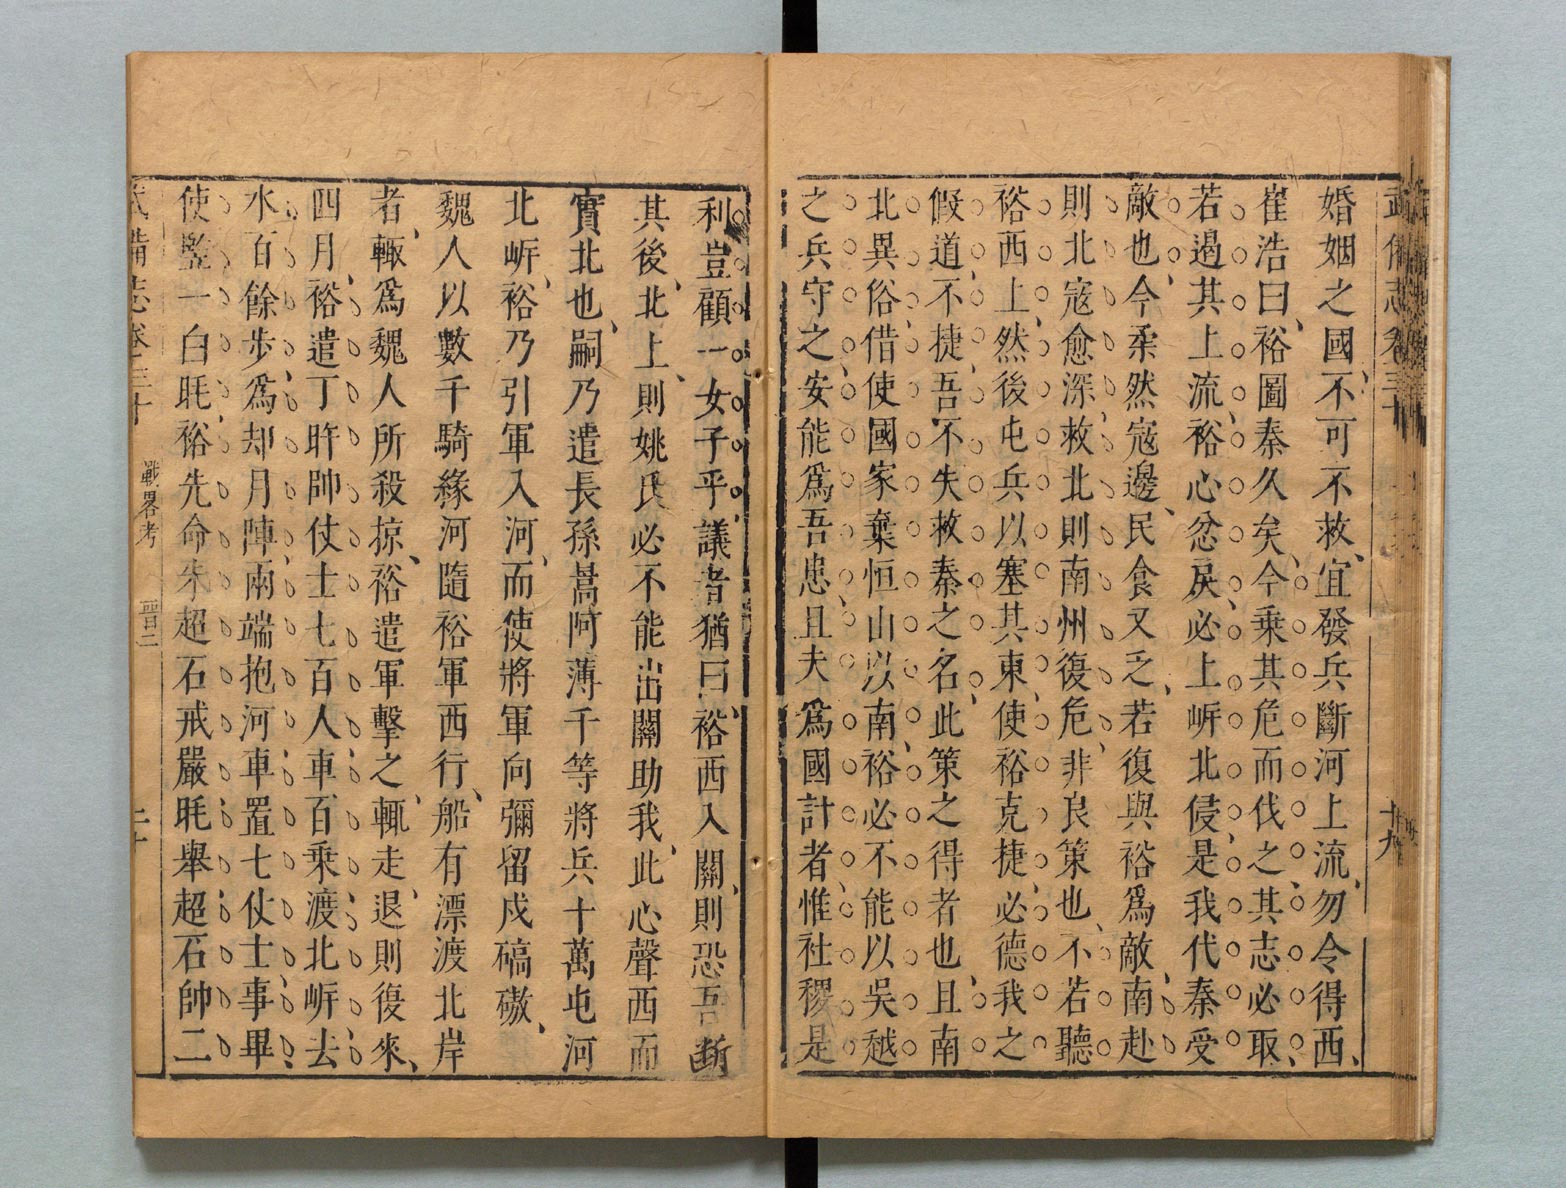 武備志卷三十
十九
婚姻之國、不可不救、宜發兵斷河上流、勿令得西、
崔浩曰、裕圖秦久矣、今乗其危而伐之、其志必取、
若遏其上流、裕心忿戾、必上岍北侵、是我代秦受
敵也、今柔然寇邊、民食又乏、若復與裕爲敵、南赴
則北寇愈深、救北則南州復危、非良策也、不若聽
裕西上、然後屯兵以塞其東、使裕克捷、必德我之
假道、不捷、吾不失救秦之名、此策之得者也、且南
北異俗、借使國家棄恒山以南、裕必不能以吳越
之兵守之、安能爲吾患、且夫爲國計者、惟社稷是
利、豈顧一女子乎、議者猶曰、裕西入關、則恐吾斷
其後、北上、則姚氏必不能出關助我、此必聲西而
實北也、嗣乃遣長孫嵩阿薄千等將兵十萬屯河
北岍、裕乃引軍入河、而使將軍向彌留戍碻磝、
魏人以數千騎緣河隨裕軍西行、船有漂渡北岸
者、輙爲魏人所殺掠、裕遣軍擊之、輒走、退則復來、
四月、裕遣丁旿帥仗士七百人車百乗渡北岍去
水百餘步、爲却月陣、兩端抱河、車置七仗士、事畢、
使竪一白毦、裕先命朱超石戒嚴、毦舉、超石帥二
武備志卷三十
戰畧考
二十